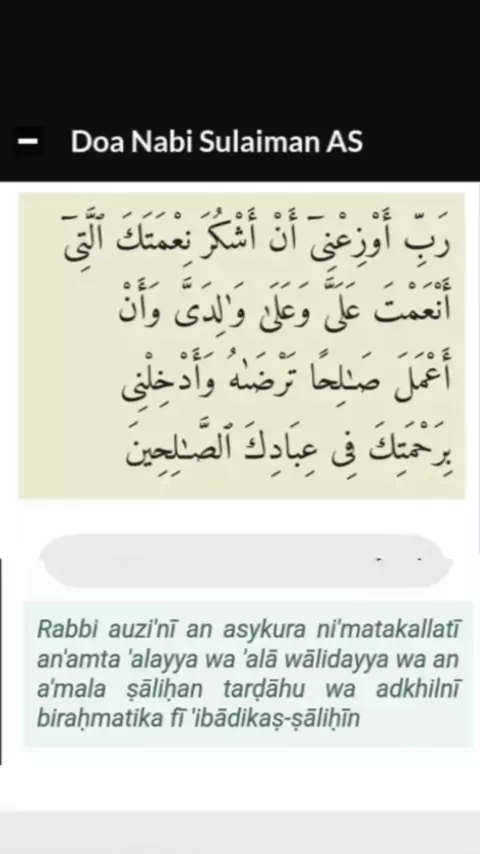 Doa Nabi Sulaiman AS
رَبِّ أَوْزِعْنِىٓ أَنْ أَشْكُرَ نِعْمَتَكَ ٱلَّتِىٓ
أَنْعَمْتَ عَلَىَّ وَعَلَىٰ وَٰلِدَىَّ وَأَنْ
أَعْمَلَ صَـٰلِحًا تَرْضَىٰهُ وَأَدْخِلْنِى
بِرَحْمَتِكَ فِى عِبَادِكَ ٱلصَّـٰلِحِينَ
Rabbi auzi'nī an asykura ni'matakallatī
an'amta 'alayya wa 'alā wālidayya wa an
a'mala ṣāliḥan tarḍāhu wa adkhilnī
biraḥmatika fī 'ibādikaṣ-ṣāliḥīn